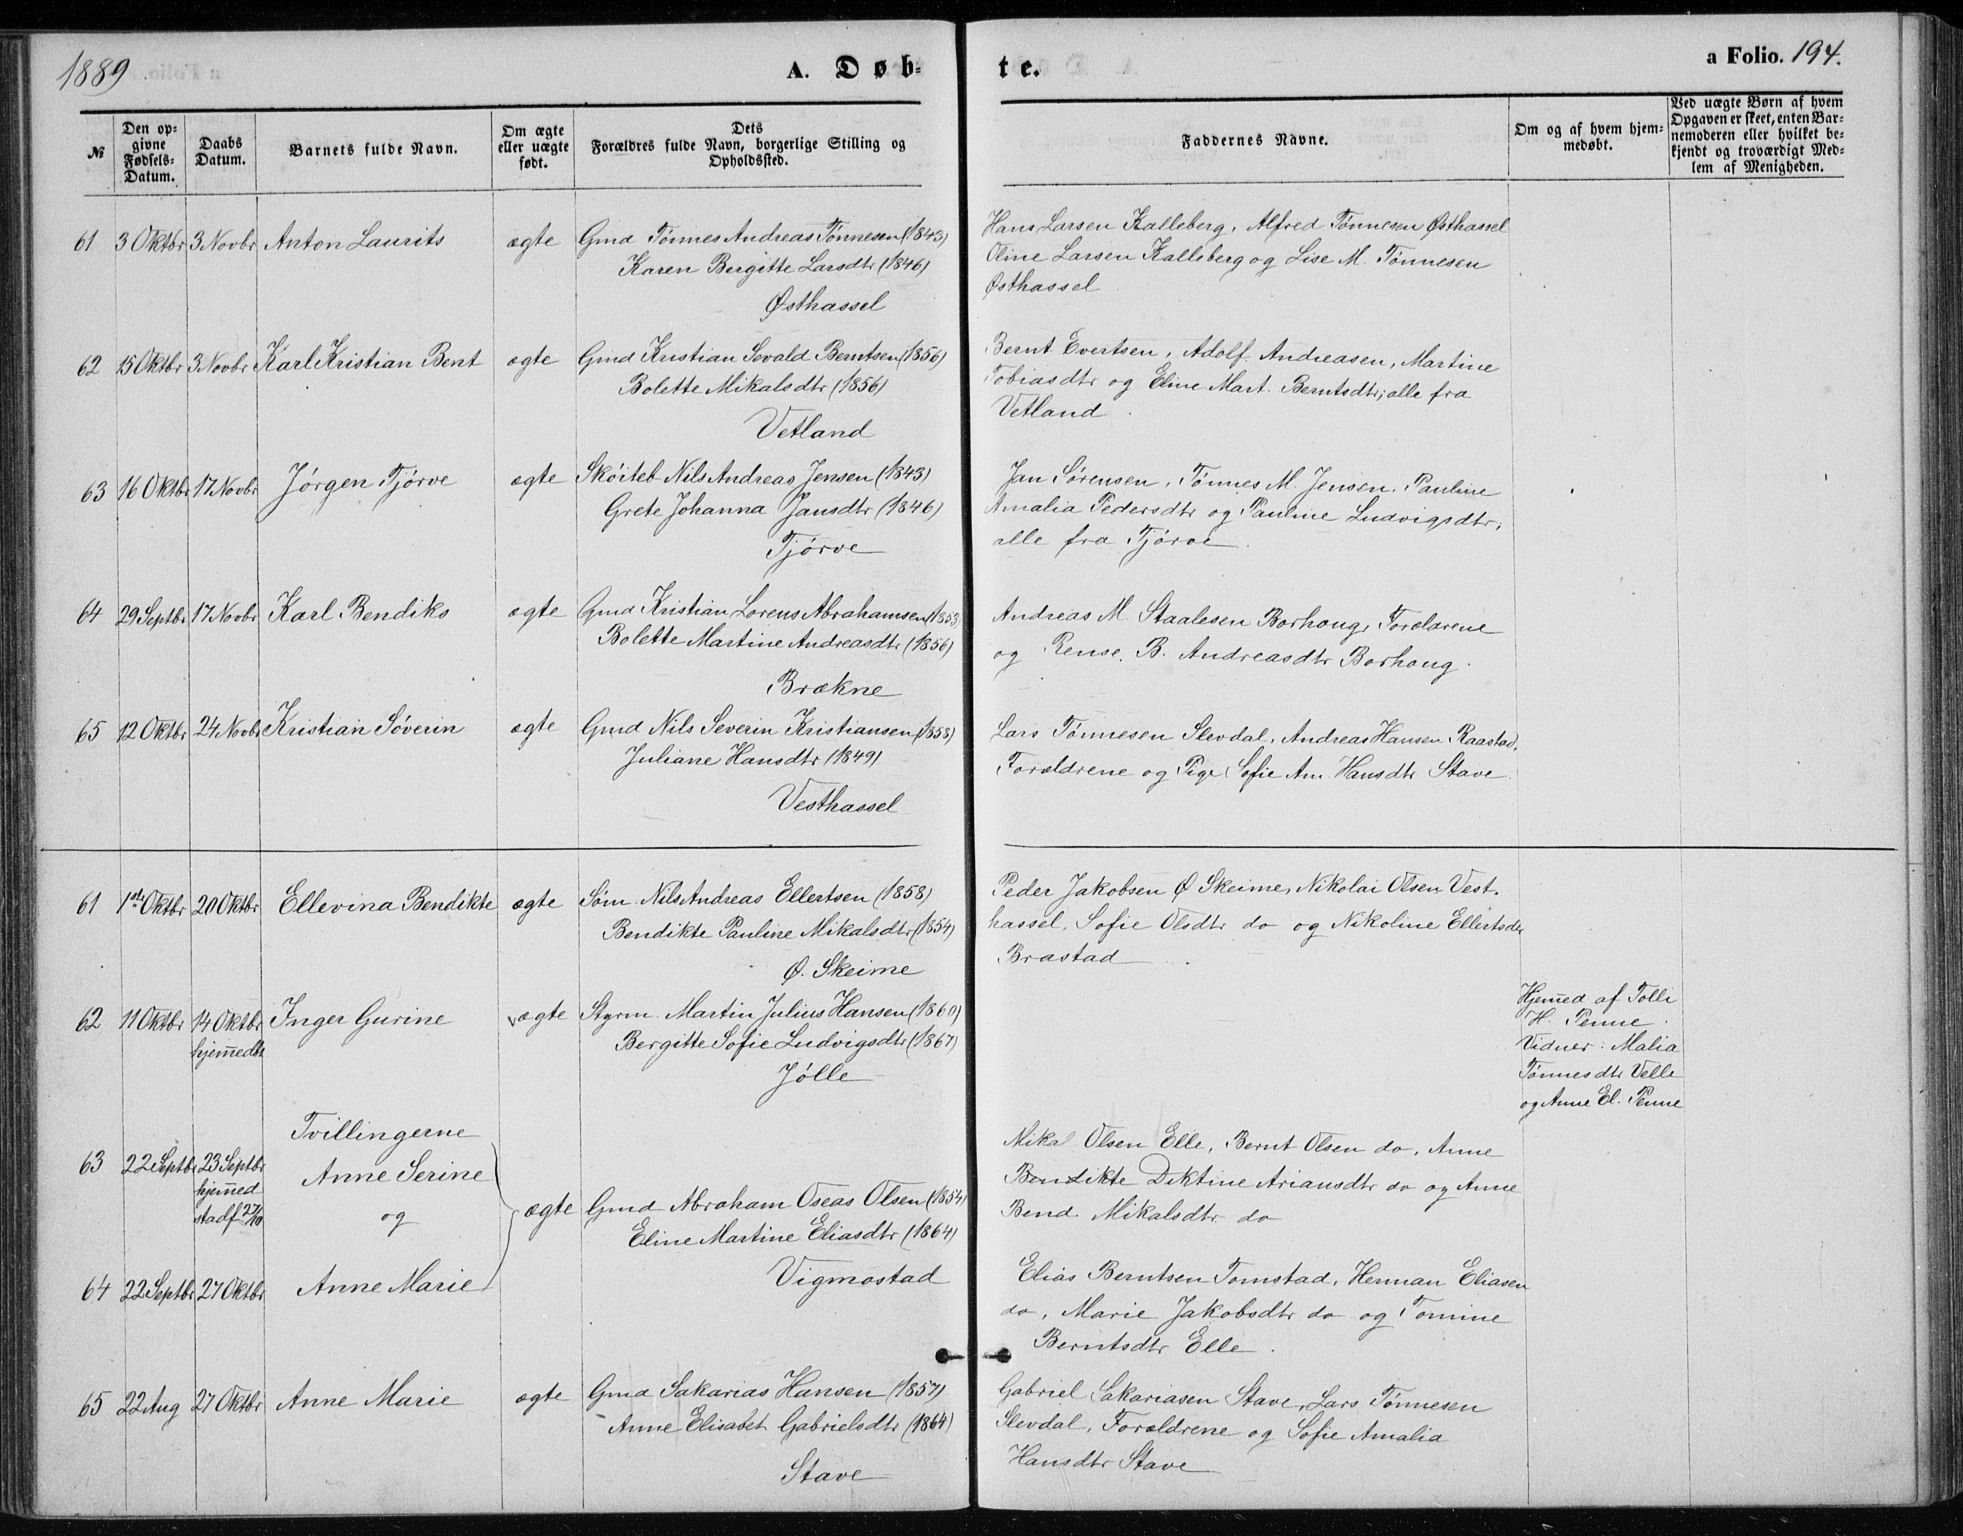 1889
A. Døb-
te.
a Folio. 194.
№
Den op-
givne
Fødsels-
Datum.
Daabs
Datum.
Barnets fulde Navn.
Om ægte
eller uægte
født.
Dets
Forældres fulde Navn, borgerlige Stilling og
Opholdssted.
Faddernes Navne.
Om og af hvem hjem-
medøbt.
Ved uægte Børn af hvem
Opgaven er skeet, enten Bar-
nemoderen eller hvilket be-
kjendt og troværdigt Med-
lem af Menigheden.
61 3 Oktbr 3 Novbr Anton Laurits ægte Gmd Tönnes Andreas Tönnesen (1843)
Karen Bergitte Larsdtr (1846)
Østhassel
Hans Larsen Kalleberg, Alfred Tönnesen Østhassel
Oline Larsen Kalleberg og Lise M. Tönnesen
Østhassel
62 15 Oktbr 3 Novbr Karl Kristian Bent ægte Gmd Kristian Sevald Berntsen (1856)
Bolette Mikalsdtr (1856)
Vetland
Bernt Evertsen, Adolf Andreasen, Martine
Tobiasdtr og Eline Mart. Berntsdtr, alle fra
Vetland
63 16 Oktbr 17 Novbr Jörgen Tjörve ægte Sköiteb Nils Andreas Jensen (1843)
Grete Johanna Jansdtr (1846)
Tjörve
Jan Sörensen, Tönnes M. Jensen, Pauline
Amalia Pedersdtr og Pauline Ludvigsdtr,
alle fra Tjörve.
64 29 Septbr 17 Novbr Karl Bendiks ægte Gmd Kristian Lorens Abrahamsen (1853
Bolette Martine Andreasdtr (1856)
Brækne
Andreas M. Staalesen Borhoug, Forælærene
og Rense. B. Andreasdtr Borhoug.
65 12 Oktbr 24 Novbr Kristian Söverin ægte Gmd Nils Severin Kristiansen (1858)
Juliane Hansdtr (1849)
Vesthassel
Lars Tönnesen Slevdal, Andreas Hansen Raastad,
Forældrene og Pige Sofie Am. Hansdtr Stave.
61 1ste Oktbr 20 Oktbr Ellevina Bendikte ægte Söm. Nils Andreas Ellertsen (1858)
Bendikte Pauline Mikalsdtr (1854)
Ø. Skeime
Peder Jakobsen Ø Skeime, Nikolai Olsen Vest-
hassel, Sofie Olsdtr do og Nikoline Ellertsdr
Brastad
62 11 Oktbr 14 Oktbr Inger Gurine ægte Styrm. Martin Julius Hansen (1860)
hjemedbt Bergitte Sofie Ludvigsdtr (1867)
Jölle
Hjemed af Tolli
H. Penne.
Vidner: Malia
Tönnesdtr Velle
og Anne El. Penne
Tvillingerne
63 22 Septbr 23 Septbr Anne Serine
hjemed
stadf 27/10 og
ægte Gmd Abraham Oseas Olsen (1854)
Eline Martine Eliasdtr (1864)
Vigmostad
Mikal Olsen Elle, Bernt Olsen do, Anne
Bendikte Diktine Ariansdtr do og Anne
Bend. Mikalsdtr do
64 22 Septbr 27 Oktbr Anne Marie
Elias Berntsen Tomstad, Herman Eliasen
do, Marie Jakobsdtr do og Tomine
Berntsdtr Elle.
65 22 Aug 27 Oktbr Anne Marie ægte Gmd Sakarias Hansen (1857)
Anne Elisabet Gabrielsdtr (1864)
Stave
Gabriel Sakariasen Stave, Lars Tönnesen
Slevdal, Forældrene og Sofie Amalia
Hansdtr Stave